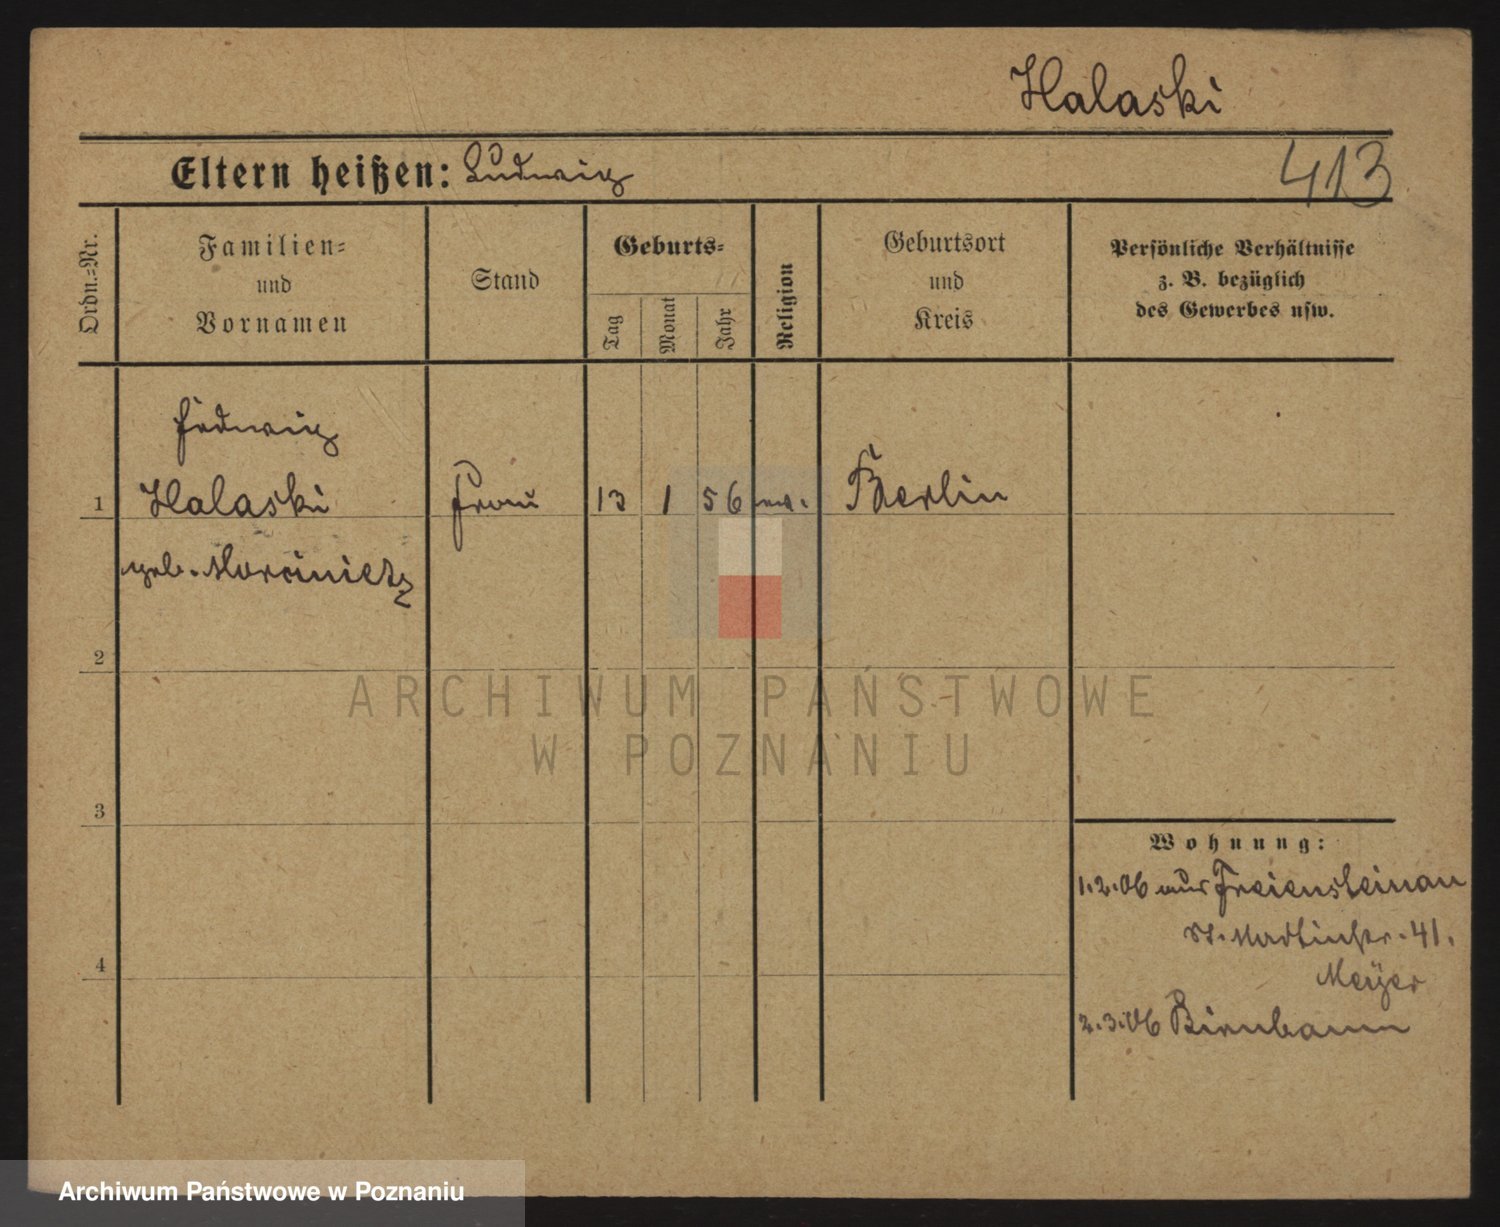 Halaski
Eltern heißen: Ludwig
413
Ordn.=Nr.
Familien=
und
Vornamen
Stand
Geburts=
Tag
Monat
Jahr
Religion
Geburtsort
und
Kreis
Persönliche Verhältnisse
z. B. bezüglich
des Gewerbes usw.
Hedwig
1 Halaski Frau 13 1 56 ev. Berlin
geb. Morcinietz
2
ARCHIWUM PAŃSTWOWE
W POZNANIU
3
Wohnung:
1.2.06 aus Freiensteinau
St. Martinstr. 41.
Meyer
4
2.3.06 Birnbaum
Archiwum Państwowe w Poznaniu